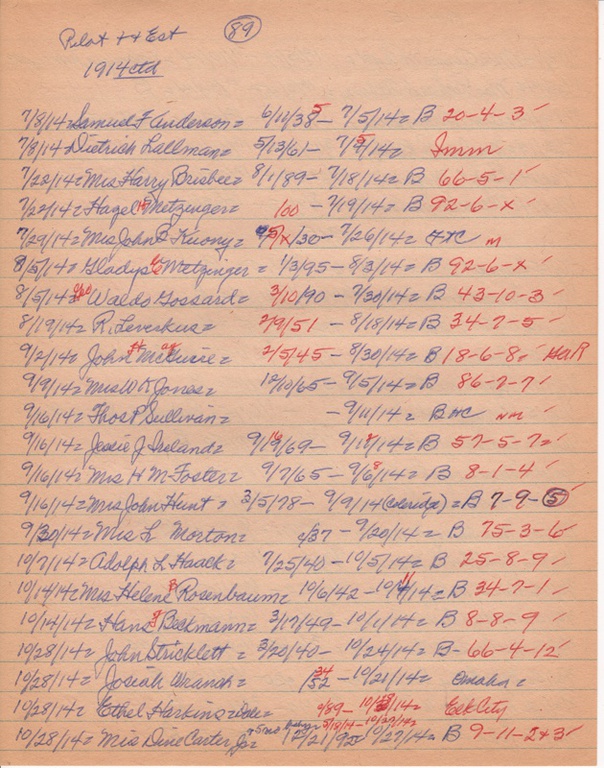 Pilot ++ Est (89)
1914 ctd
7/8/14= Samuel F Anderson= 6/11/38 5 - 7/5/14= B 20-4-3 ✓
7/8/14= Dietrich Lallman= 5/13/61 - 7/5/14= Imm
7/22/14= Mrs Harry Brisbee= 8/1/89 - 7/18/14= B 66-5-1 ✓
7/22/14= Hazel Metzinger= 100 - 7/19/14= B 92-6-x ✓
7/29/14= Mrs John B = /30 - 7/26/14= m
8/5/14= Gladys Metzinger = 1/3/95 - 8/3/14= B 92-6-x ✓
8/5/14= Waldo Gossard= 3/10/90 - 7/30/14= B 43-10-3 ✓
8/19/14= R. Leverkus= 2/9/51 - 8/18/14= B 34-7-5 ✓
9/2/14= John = 2/5/45 - 8/30/14= B 18-6-8= ✓
9/9/14= Mrs W K Jones= 12/10/65 - 9/5/14= B 86-7-7 ✓
9/16/14= Thos P Sullivan= - 9/11/14= B nm ✓
9/16/14= Jessie J Ireland= /69 - /14= B 57-5-7= ✓
9/16/14= Mrs H M Foster= 9/7/65 - 9/6/14= B 8-1-4 ✓
9/16/14= Mrs John Hunt = 3/5/78 - 9/9/14 (Coleridge) = B 7-9-(5)
9/30/14= Mrs L Morton= /37 - 9/20/14= B 75-3-6 ✓
10/7/14= Adolph L. Haack= 7/25/40 - 10/5/14= B 25-8-9 ✓
10/14/14= Mrs Helene Rosenbaum= 10/6/42 - /14= B 34-7-1 ✓
10/14/14= Hans Beckmann= 3/17/49 - 10/1/14= B 8-8-9 ✓
10/28/14= John Stricklett = 3/20/40 - 10/24/14= B - 66-4-12 ✓
10/28/14= Josiah = - 10/21/14= Omaha =
10/28/14= Ethel Harkins= /89 - /14= Elk City
10/28/14= Mrs Dine Carter, Jr= 10/27/14= B 9-11-2+3 ✓